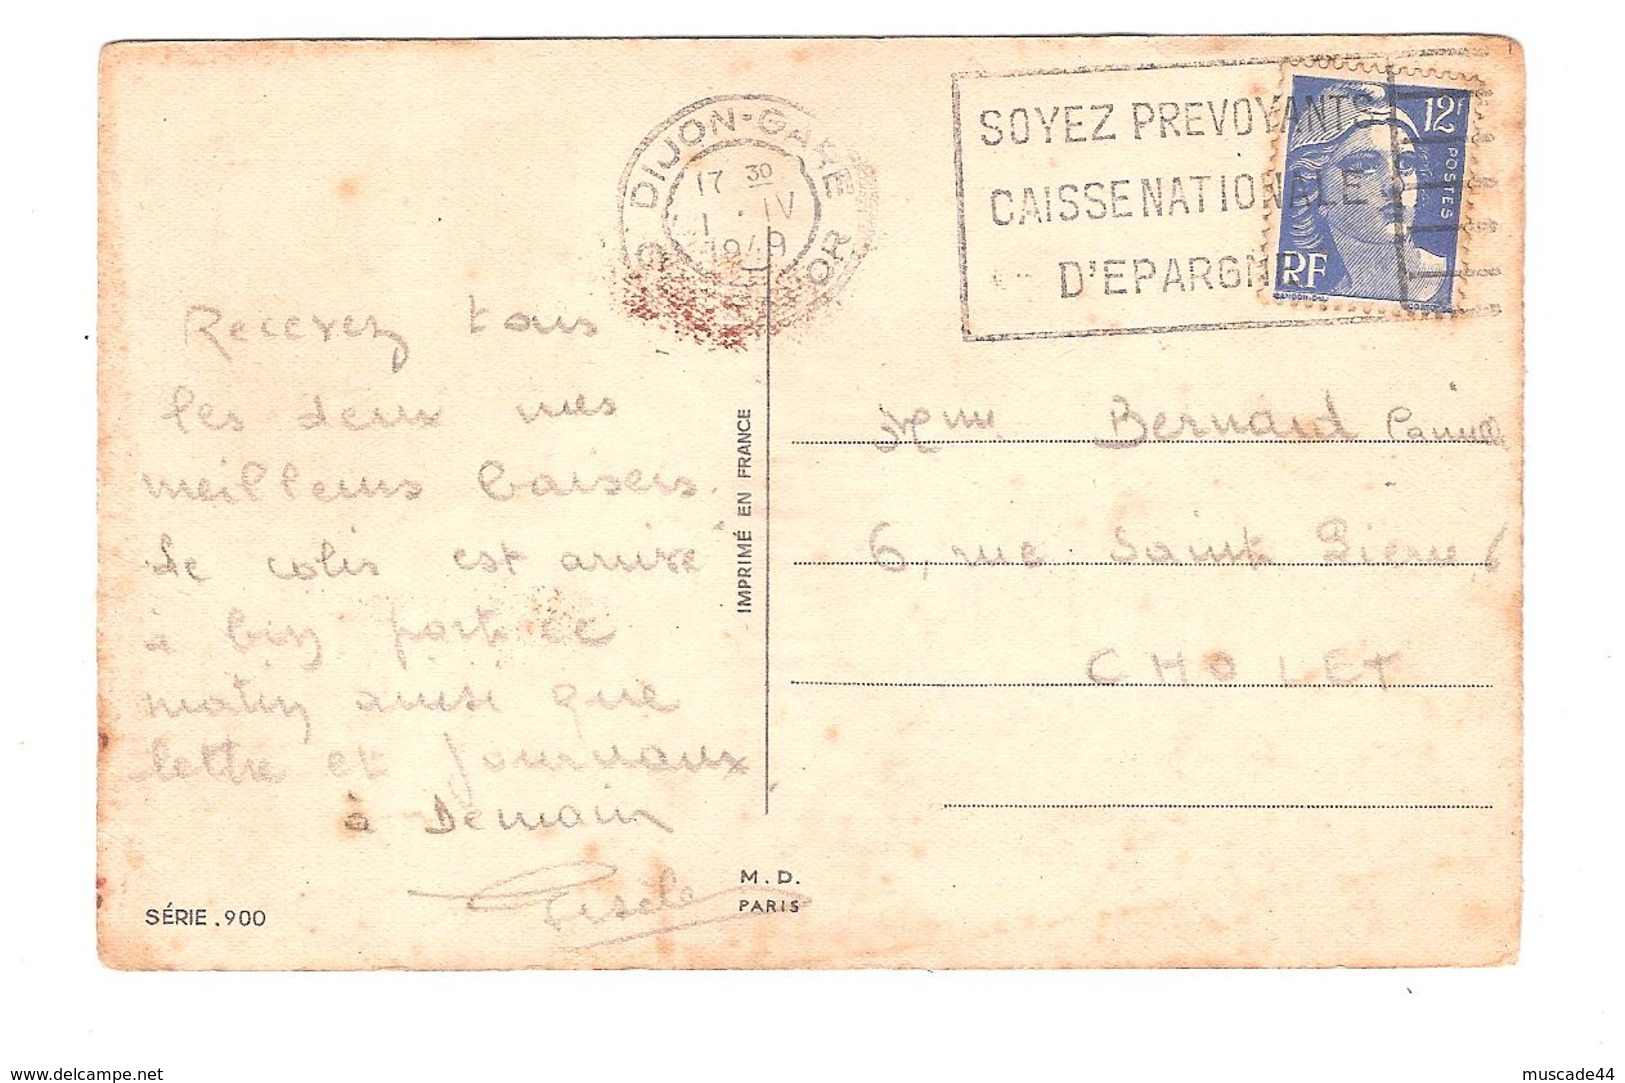 DIJON-GARE
17 30
1 . IV
1949
COTE D'OR
SOYEZ PREVOYANTS
CAISSE NATIONALE
D'EPARGNE
12F
POSTES
RF
Recevez tous
les deux mes
meilleurs baisers.
Le colis est arrivé
à bon port ce
matin ainsi que
lettre et journaux
à Demain
Gisèle
SÉRIE.900
IMPRIMÉ EN FRANCE
M.D.
PARIS
Mme Bernard Camille
6, rue Saint Pierre, 6
CHOLET
www.delcampe.net
muscade44